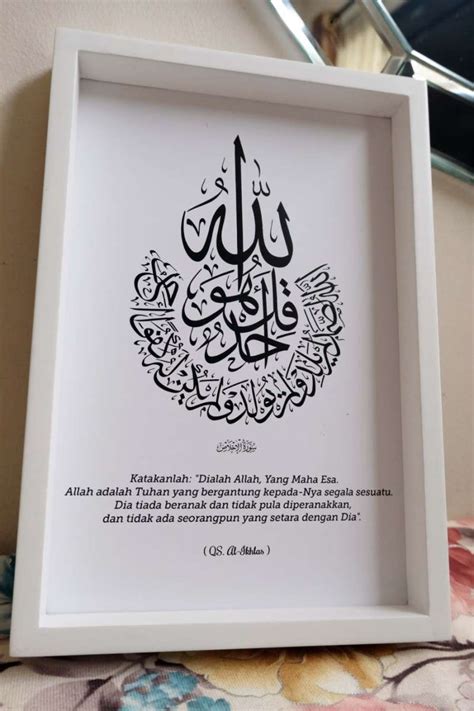 قل هو الله أحد
الله الصمد لم يلد ولم يولد ولم يكن له كفوا أحد
سورة الإخلاص
Katakanlah: "Dialah Allah, Yang Maha Esa.
Allah adalah Tuhan yang bergantung kepada-Nya segala sesuatu.
Dia tiada beranak dan tidak pula diperanakkan,
dan tidak ada seorangpun yang setara dengan Dia".
( QS. Al-Ikhlas )